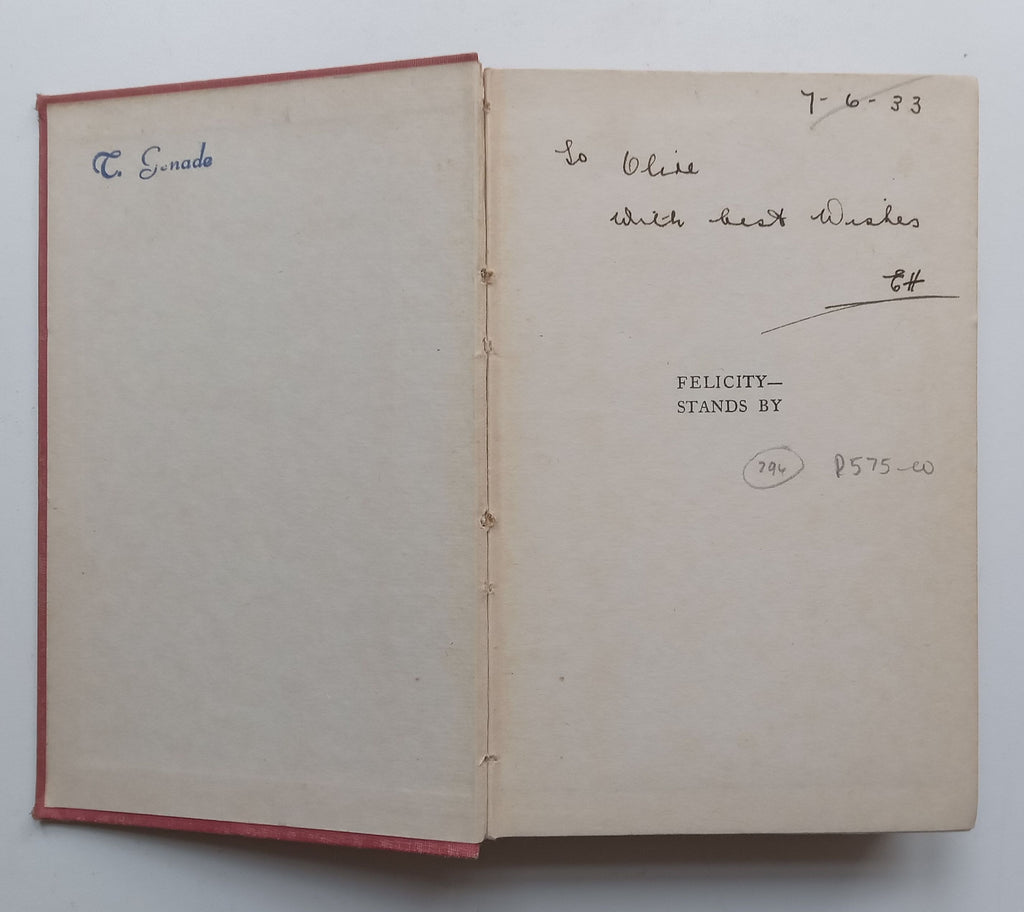 T. Genade
7-6-33
To Olive
With best Wishes
EH
FELICITY—
STANDS BY
R575-00